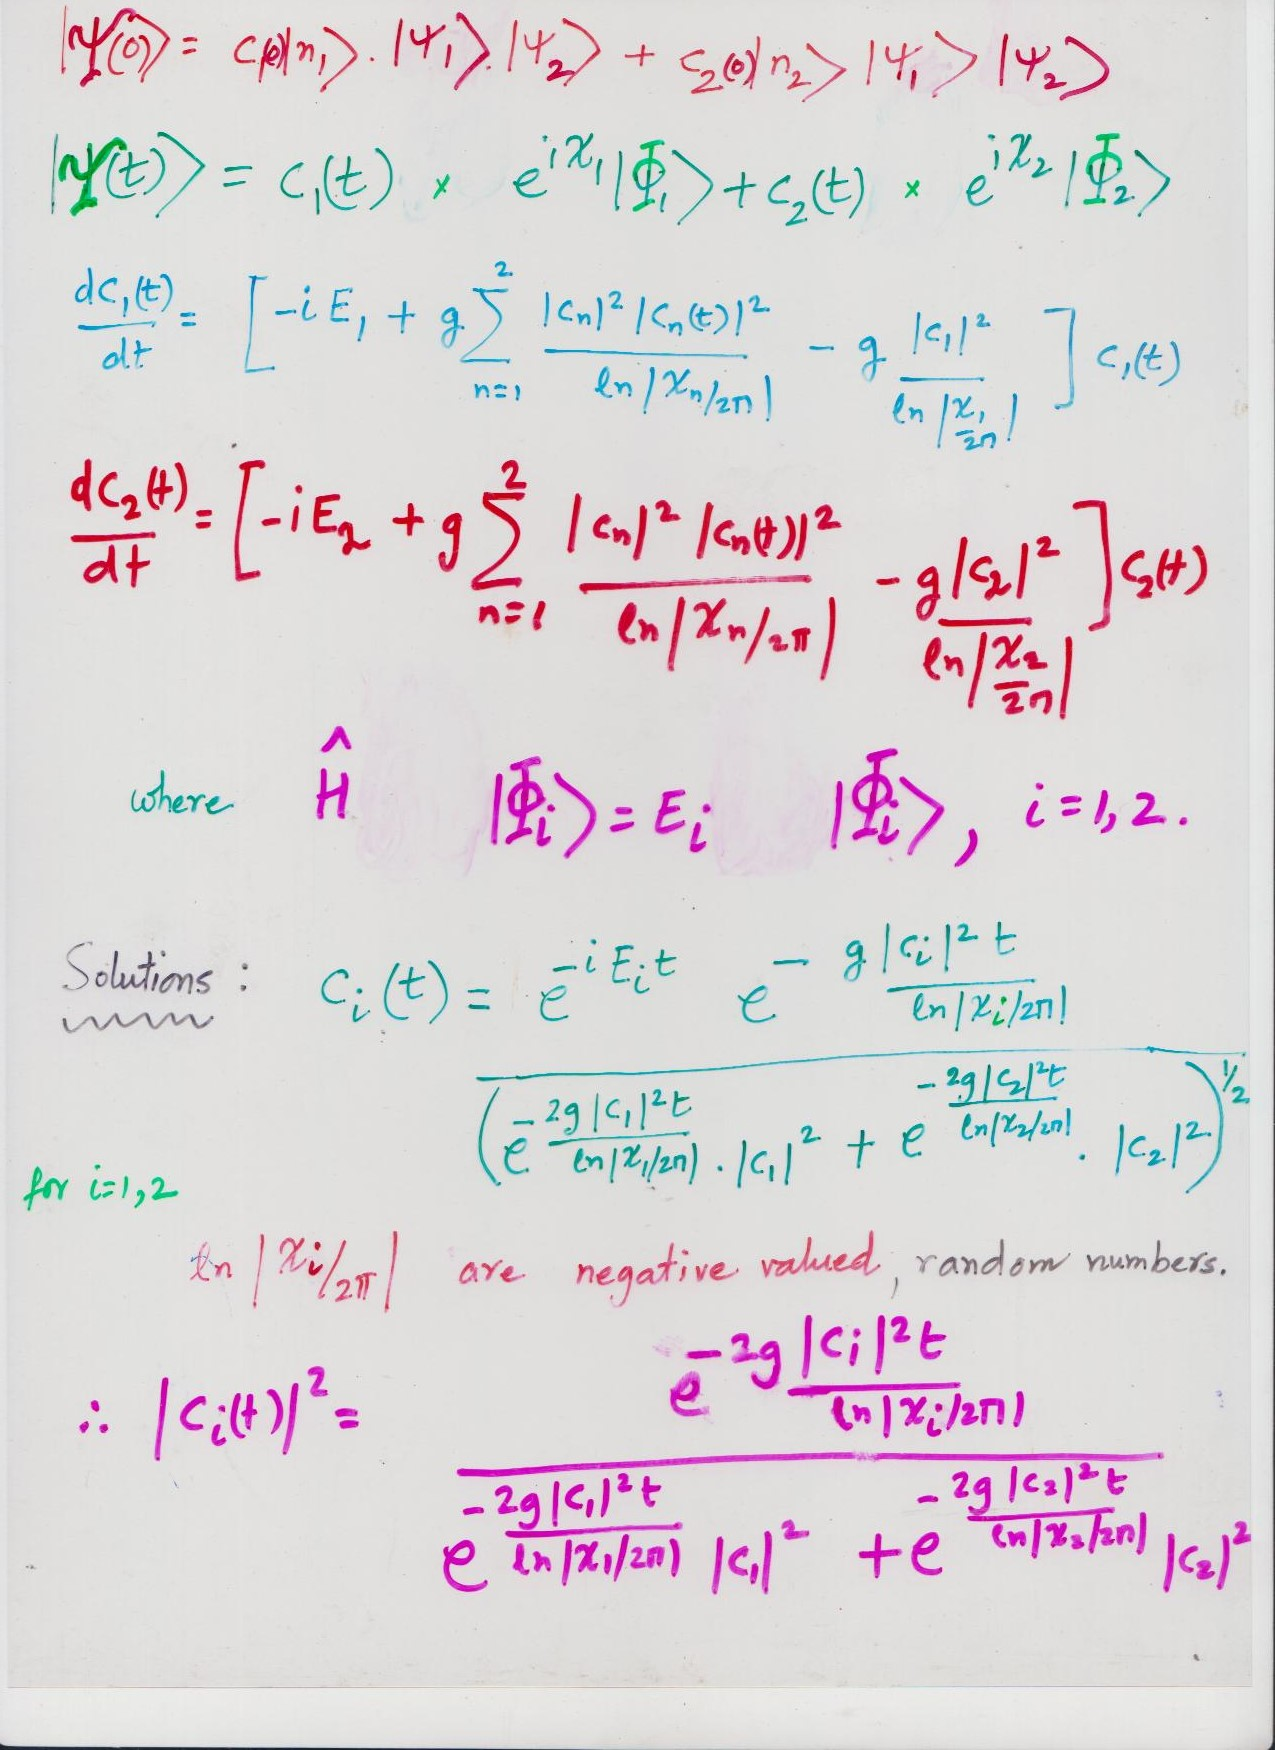 |Ψ(0)⟩ = c₁(0)|n₁⟩ . |Ψ₁⟩.|Ψ₂⟩ + c₂(0)|n₂⟩ |Ψ₁⟩ |Ψ₂⟩
|Ψ(t)⟩ = c₁(t) × e^{iχ₁}|Φ₁⟩ + c₂(t) × e^{iχ₂}|Φ₂⟩
dc₁(t)/dt = [-iE₁ + g Σ_{n=1}^{2} |cₙ|² |cₙ(t)|² / ln|χₙ/2π| - g |c₁|² / ln|χ₁/2π|] c₁(t)
dc₂(t)/dt = [-iE₂ + g Σ_{n=1}^{2} |cₙ|² |cₙ(t)|² / ln|χₙ/2π| - g|c₂|² / ln|χ₂/2π|] c₂(t)
where Ĥ |Φᵢ⟩ = Eᵢ |Φᵢ⟩, i=1,2.
Solutions : cᵢ(t) = e^{-iEᵢt} e^{- g|cᵢ|²t / ln|χᵢ/2π|}
/ (e^{-2g|c₁|²t / ln|χ₁/2π|} . |c₁|² + e^{-2g|c₂|²t / ln|χ₂/2π|} . |c₂|²)^{1/2}
for i=1,2
ln|χᵢ/2π| are negative valued, random numbers.
∴ |cᵢ(t)|² = e^{-2g|cᵢ|²t / ln|χᵢ/2π|}
/ e^{-2g|c₁|²t / ln|χ₁/2π|} |c₁|² + e^{-2g|c₂|²t / ln|χ₂/2π|} |c₂|²